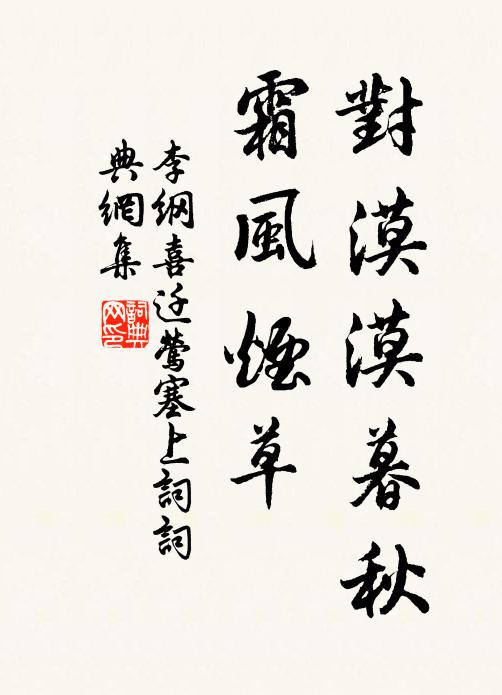 對漠漠暮秋
霜風煙草
李綱喜迁鶯塞上詞詞
典網集
詞典
网印